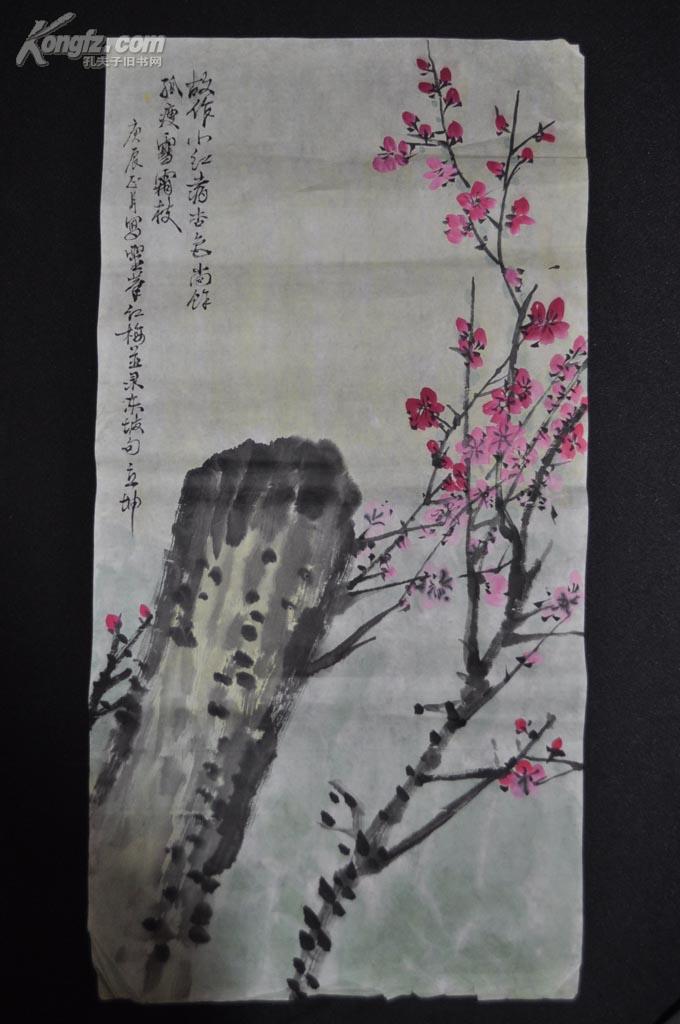 Kongfz.com
孔夫子旧书网
故作小红杏色尚馀
孤瘦雪霜
庚辰正月写笔红梅並录东坡句立坤